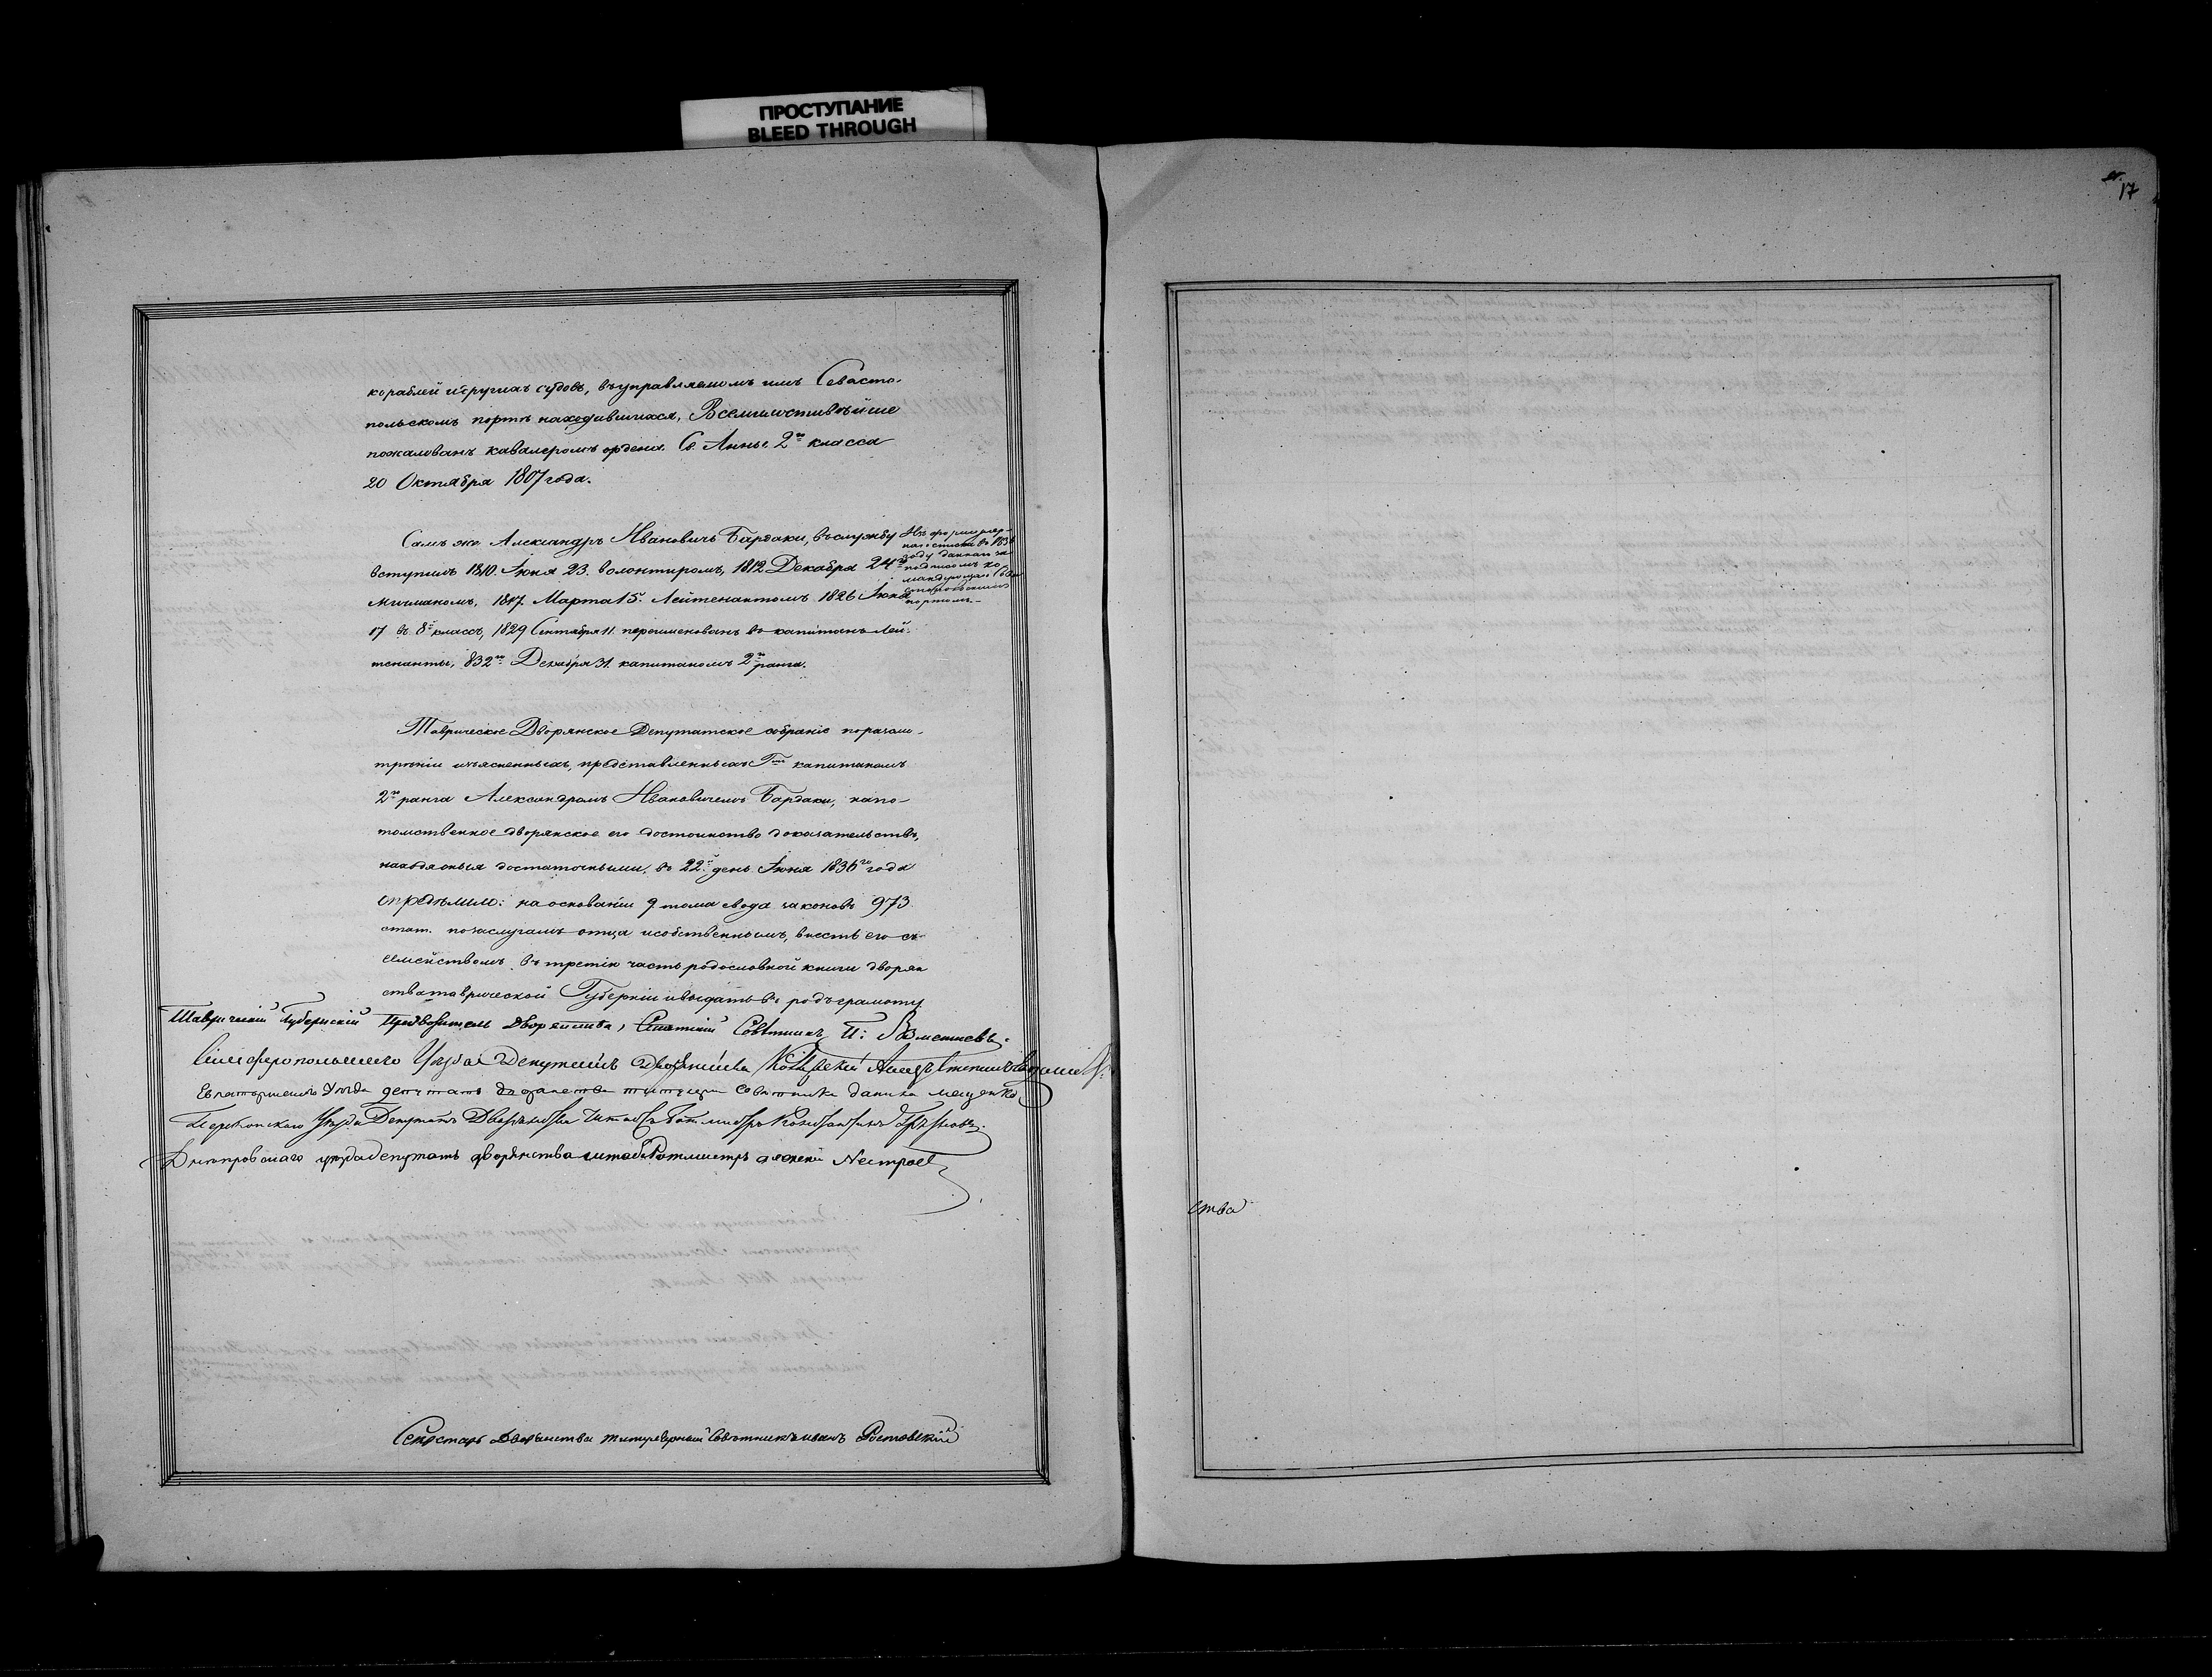 ПРОСТУПАНИЕ
BLEED THROUGH
17
кораблей и другихъ судовъ, въ управляемомъ имъ Севасто-
польскомъ портѣ находившихся, Всемилостивѣйше
пожалованъ кавалеромъ ордена Св. Анны 2го класса
20 Октября 1807 года.
Самъ же Александръ Ивановичъ Бардаки, въ службу
вступилъ 1810. Іюня 23. волонтиромъ, 1812 Декабря 24го
мичманомъ, 1817. Марта 15. Лейтенантомъ 1826 Іюня
17 въ 8й классъ, 1829 Сентября 11. переименованъ въ капитанъ Лей-
тенанты, 832го Декабря 31. капитаномъ 2го ранга.
Изъ формуляр-
наго списка въ 1836
году даннаго за
подписомъ ко-
мандующаго Сева-
стопольскимъ
портомъ.
Таврическое Дворянское Депутатское собраніе поразсмо-
трѣніи изъясненныхъ, представленныхъ Гмъ капитаномъ
2го ранга Александромъ Ивановичемъ Бардаки, напо-
томственное дворянское его достоинство доказательствъ,
находя оныя достаточными, въ 22й день Іюня 1836го года
опредѣлило: на основаніи 9 тома свода законовъ 973
стат. по заслугамъ отца и собственнымъ, внесть его съ
семействомъ въ третію часть родословной книги дворян
ства таврической Губерніи и выдать въ родъ грамоту
Таврическій Губернскій Предводитель Дворянства, Статскій Совѣтникъ
Симферопольскаго Уѣзда Депутатъ Дворянства
Евпаторискаго Уѣзда депутатъ дворанства титуляр Совѣтникъ данила мещенко
Перекопскаго Уѣзда Депутатъ Дворянства Штабсъ Ротмистръ Константинъ
Днѣпровскаго уезда депутатъ дворянства штабс Ротмистръ Алексей Нестроев
ства
Секретарь Дворянства титулярный Совѣтникъ иванъ Ростовскій